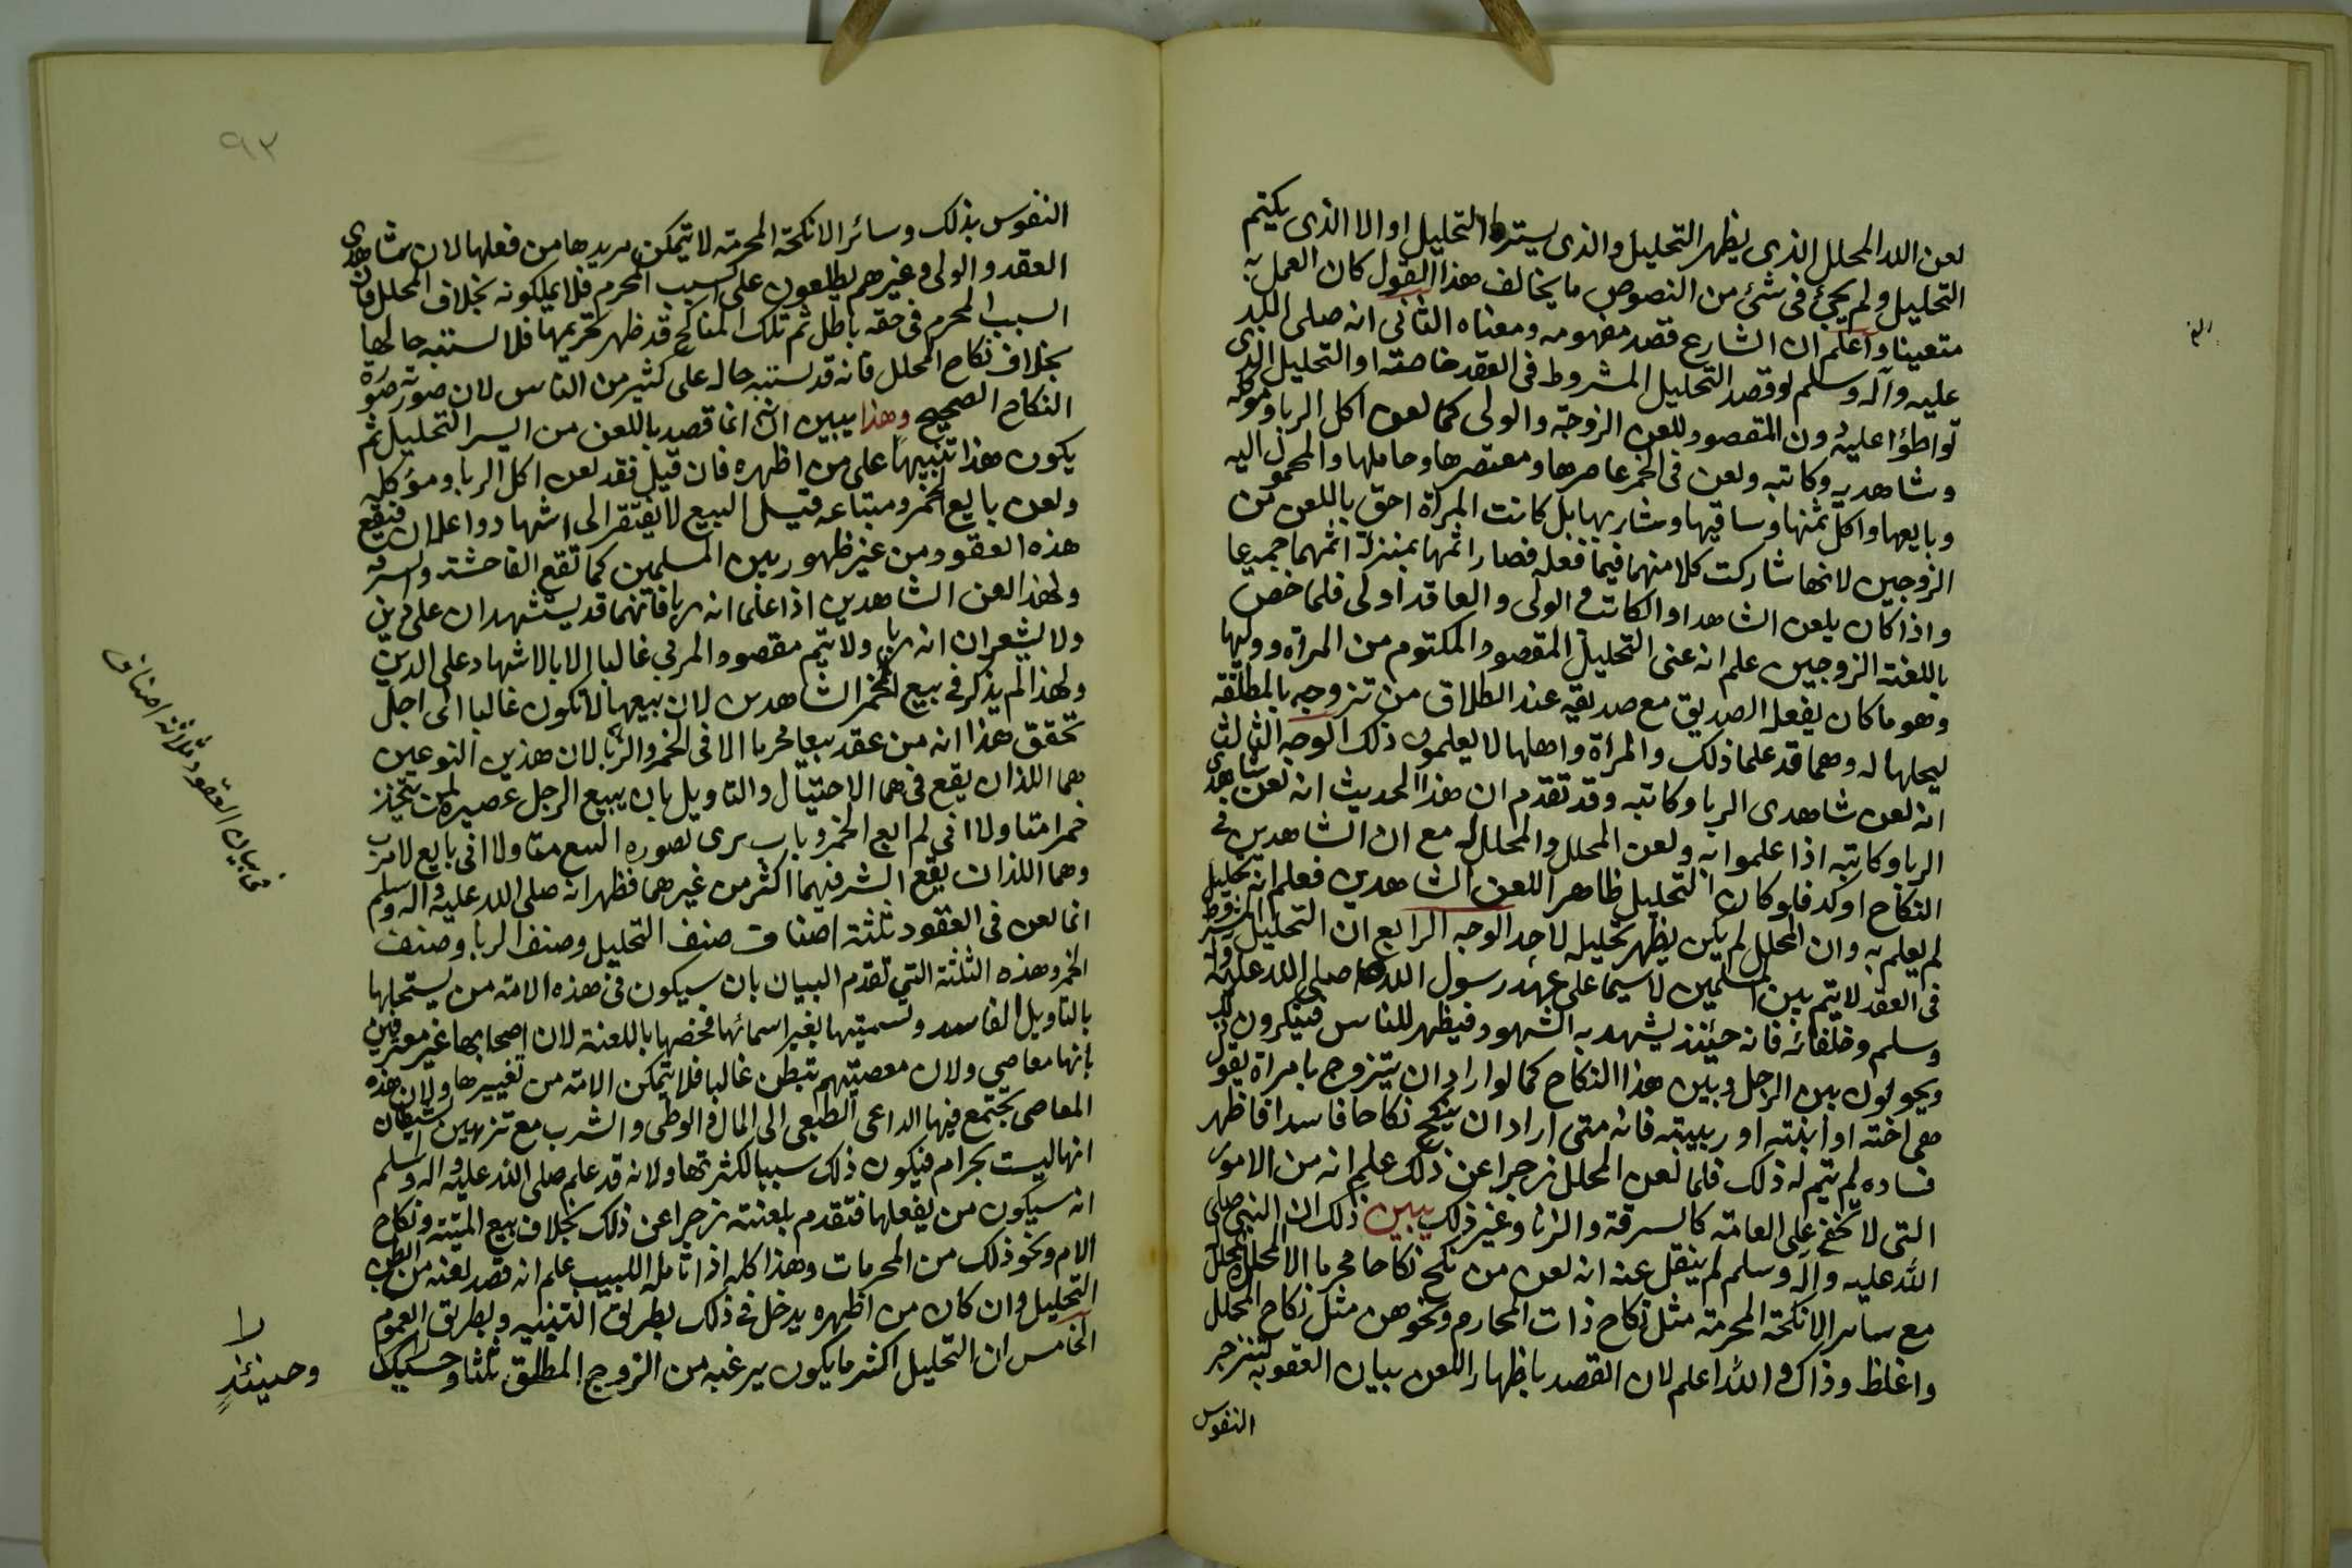 لعن الله المحلل الذى يظهر التحليل والذى يستره التحليل او الا الذى يكتم
التحليل ولم يجئ فى شئ من النصوص ما يخالف هذا القول كان العمل به
متعينا واعلم ان الشارع قصد مفهومه ومعناه الثانى انه صلى الله
عليه وآله وسلم لو قصد التحليل المشروط فى العقد خاصة او التحليل الذى
تواطؤا عليه دون المقصود للعن الزوجة والولى كما لعن اكل الربا وموكله
وشاهديه وكاتبه ولعن فى الخمر عاصرها ومعتصرها وحاملها والمحمول اليه
وبايعها واكل ثمنها وساقيها وشاربها بل كانت المرأة احق باللعن من
الزوجين لانها شاركت كلا منهما فيما فعله فصار اثمها بمنزلة اثمهما جميعا
واذا كان يلعن الشاهد او الكاتب فى الولى والعاقد اولى فلما خص
باللعنة الزوجين علم انه عنى التحليل المقصود المكتوم من المرأة ووليها
وهو ما كان يفعله الصديق مع صديقه عند الطلاق من تزوجه بالمطلقة
ليحلها له وهما قد علما ذلك والمرأة واهلها لا يعلمون ذلك الوجه الثالث
انه لعن شاهدى الربا وكاتبه وقد تقدم ان هذا الحديث انه لعن شاهدى
الربا وكاتبه اذا علموا به ولعن المحلل والمحلل له مع ان الشاهدين فى
النكاح اوكد فلو كان التحليل ظاهرا للعن الشاهدين فعلم انه تحليل
لم يعلم به وان المحلل لم يكن يظهر تحليله لاحد الوجه الرابع ان التحليل المشروط
فى العقد لا يتم بين المسلمين لا سيما على عهد رسول الله صلى الله عليه وآله
وسلم وخلفائه فانه حينئذ يشهد به الشهود فيظهر للناس فينكرون ذلك
ويحولون بين الرجل وبين هذا النكاح كما لو اراد ان يتزوج بامراة يقول
هى اخته او ابنته او ربيبته فانه متى اراد ان ينكح نكاحا فاسدا فاظهر
فساده لم يتم له ذلك فلما لعن المحلل زجرا عن ذلك علم انه من الامور
التى لا تخفى على العامة كالسرقة والزنا وغير ذلك يبين ذلك ان النبى صلى
الله عليه وآله وسلم لم ينقل عنه انه لعن من نكح نكاحا محرما الا المحلل والمحلل
مع سائر الانكحة المحرمة مثل نكاح ذات المحارم ونحوهن مثل نكاح المحلل
واغلظ وذاك والله اعلم لان القصد باظهار اللعن بيان العقوبة لتنزجر
النفوس
٩٢
النفوس بذلك وسائر الانكحة المحرمة لا يتمكن مريدها من فعلها لان شاهدى
العقد والولى وغيرهم يطلعون على السبب المحرم فلا يمكونه بخلاف المحلل فان
السبب المحرم فى حقه باطل ثم تلك المناكح قد ظهر تحريمها فلا تشتبه حالها
بخلاف نكاح المحلل فانه قد يشتبه حاله على كثير من الناس لان صورته صورة
النكاح الصحيح وهذا يبين انه انما قصد باللعن من اسر التحليل ثم
يكون هذا تنبيها على من اظهره فان قيل فقد لعن اكل الربا ومؤكله
ولعن بايع الخمر ومبتاعه قيل البيع لا يفتقر الى اشهاد واعلان فتقع
هذه العقود من غير ظهور بين المسلمين كما تقع الفاحشة والسرقة
ولهذا لعن الشاهدين اذا علما انه ربا فانهما قد يستشهدان على دين
ولا يشعران انه ربا ولا يتم مقصود المربى غالبا الا بالاشهاد على الدين
ولهذا لم يذكر فى بيع الخمر الشاهدين لان بيعها لا تكون غالبا الى اجل
تحقق هذا انه من عقد بيعا محرما الا فى الخمر والربا لان هذين النوعين
هما اللذان يقع فى هما الاحتيال والتاويل بان يبيع الرجل عصيره لمن يتخذ
خمرا متاولا انى لم ابع الخمر وبان يرى بصوره البيع متاولا انى بايع لا مرب
وهما اللذان يقع الشر فيهما اكثر من غيرهما فظهر انه صلى الله عليه وآله وسلم
انما لعن فى العقود ثلثة اصناف صنف التحليل وصنف الربا وصنف
الخمر وهذه الثلثة التى تقدم البيان بان سيكون فى هذه الامة من يستحلها
بالتاويل الفاسد وتسميتها بغير اسمائها فخصها باللعنة لان اصحابها غير معترفين
بانها معاصى ولان معصيتهم تبطن غالبا فلا يتمكن الامة من تغييرها ولان هذه
المعاصى يجتمع فيها الداعى الطبعى الى المال والوطى والشرب مع تزيين الشيطان
انها ليست بحرام فيكون ذلك سببا لكثرتها ولانه قد علم صلى الله عليه وآله وسلم
انه سيكون من يفعلها فتقدم بلعنته زجرا عن ذلك بخلاف بيع الميتة ونكاح
الام ونحو ذلك من المحرمات وهذا كله اذا تامله اللبيب علم انه قصد لعنه من ابطن
التحليل وان كان من اظهره يدخل فى ذلك بطريق التنبيه وبطريق العموم
الخامس ان التحليل اكثر ما يكون برغبة من الزوج المطلق ثلثا و
وحينئذٍ
لا
فى بيان العقود ثلاثة اصناف